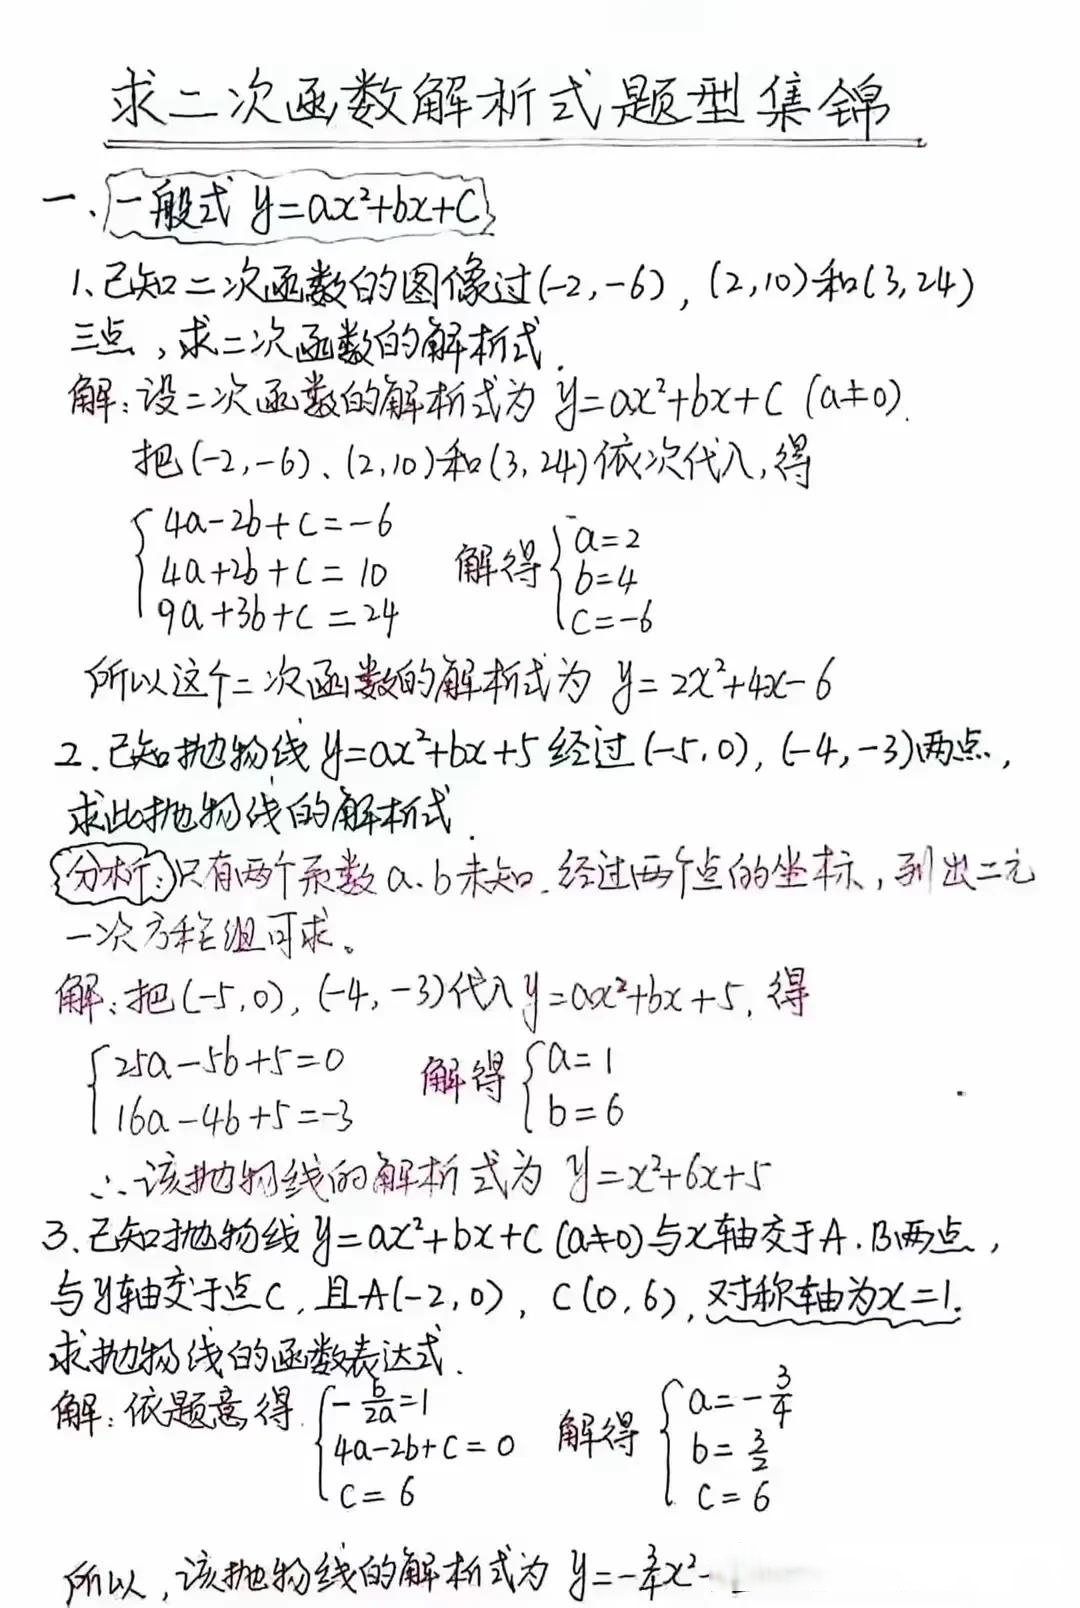 求二次函数解析式题型集锦
一、一般式 y=ax²+bx+C
1、已知二次函数的图像过(-2,-6),(2,10)和(3,24)
三点,求二次函数的解析式.
解:设二次函数的解析式为 y=ax²+bx+C (a≠0).
把(-2,-6)、(2,10)和(3,24)依次代入,得
{4a-2b+C=-6
4a+2b+C=10
9a+3b+C=24 解得 {a=2
b=4
C=-6
所以这个二次函数的解析式为 y=2x²+4x-6
2.已知抛物线 y=ax²+bx+5 经过(-5,0),(-4,-3)两点,
求此抛物线的解析式.
分析:只有两个系数a.b未知.经过两个点的坐标,列出二元
一次方程组可求。
解:把(-5,0),(-4,-3)代入y=ax²+bx+5,得
{25a-5b+5=0
16a-4b+5=-3 解得 {a=1
b=6
∴该抛物线的解析式为 y=x²+6x+5
3、已知抛物线 y=ax²+bx+C (a≠0)与x轴交于A.B两点,
与y轴交于点C,且A(-2,0),C(0,6),对称轴为x=1.
求抛物线的函数表达式.
解:依题意,得 {-b/2a=1
4a-2b+C=0
C=6 解得 {a=-3/4
b=3/2
C=6
所以,该抛物线的解析式为 y=-3/4x²-